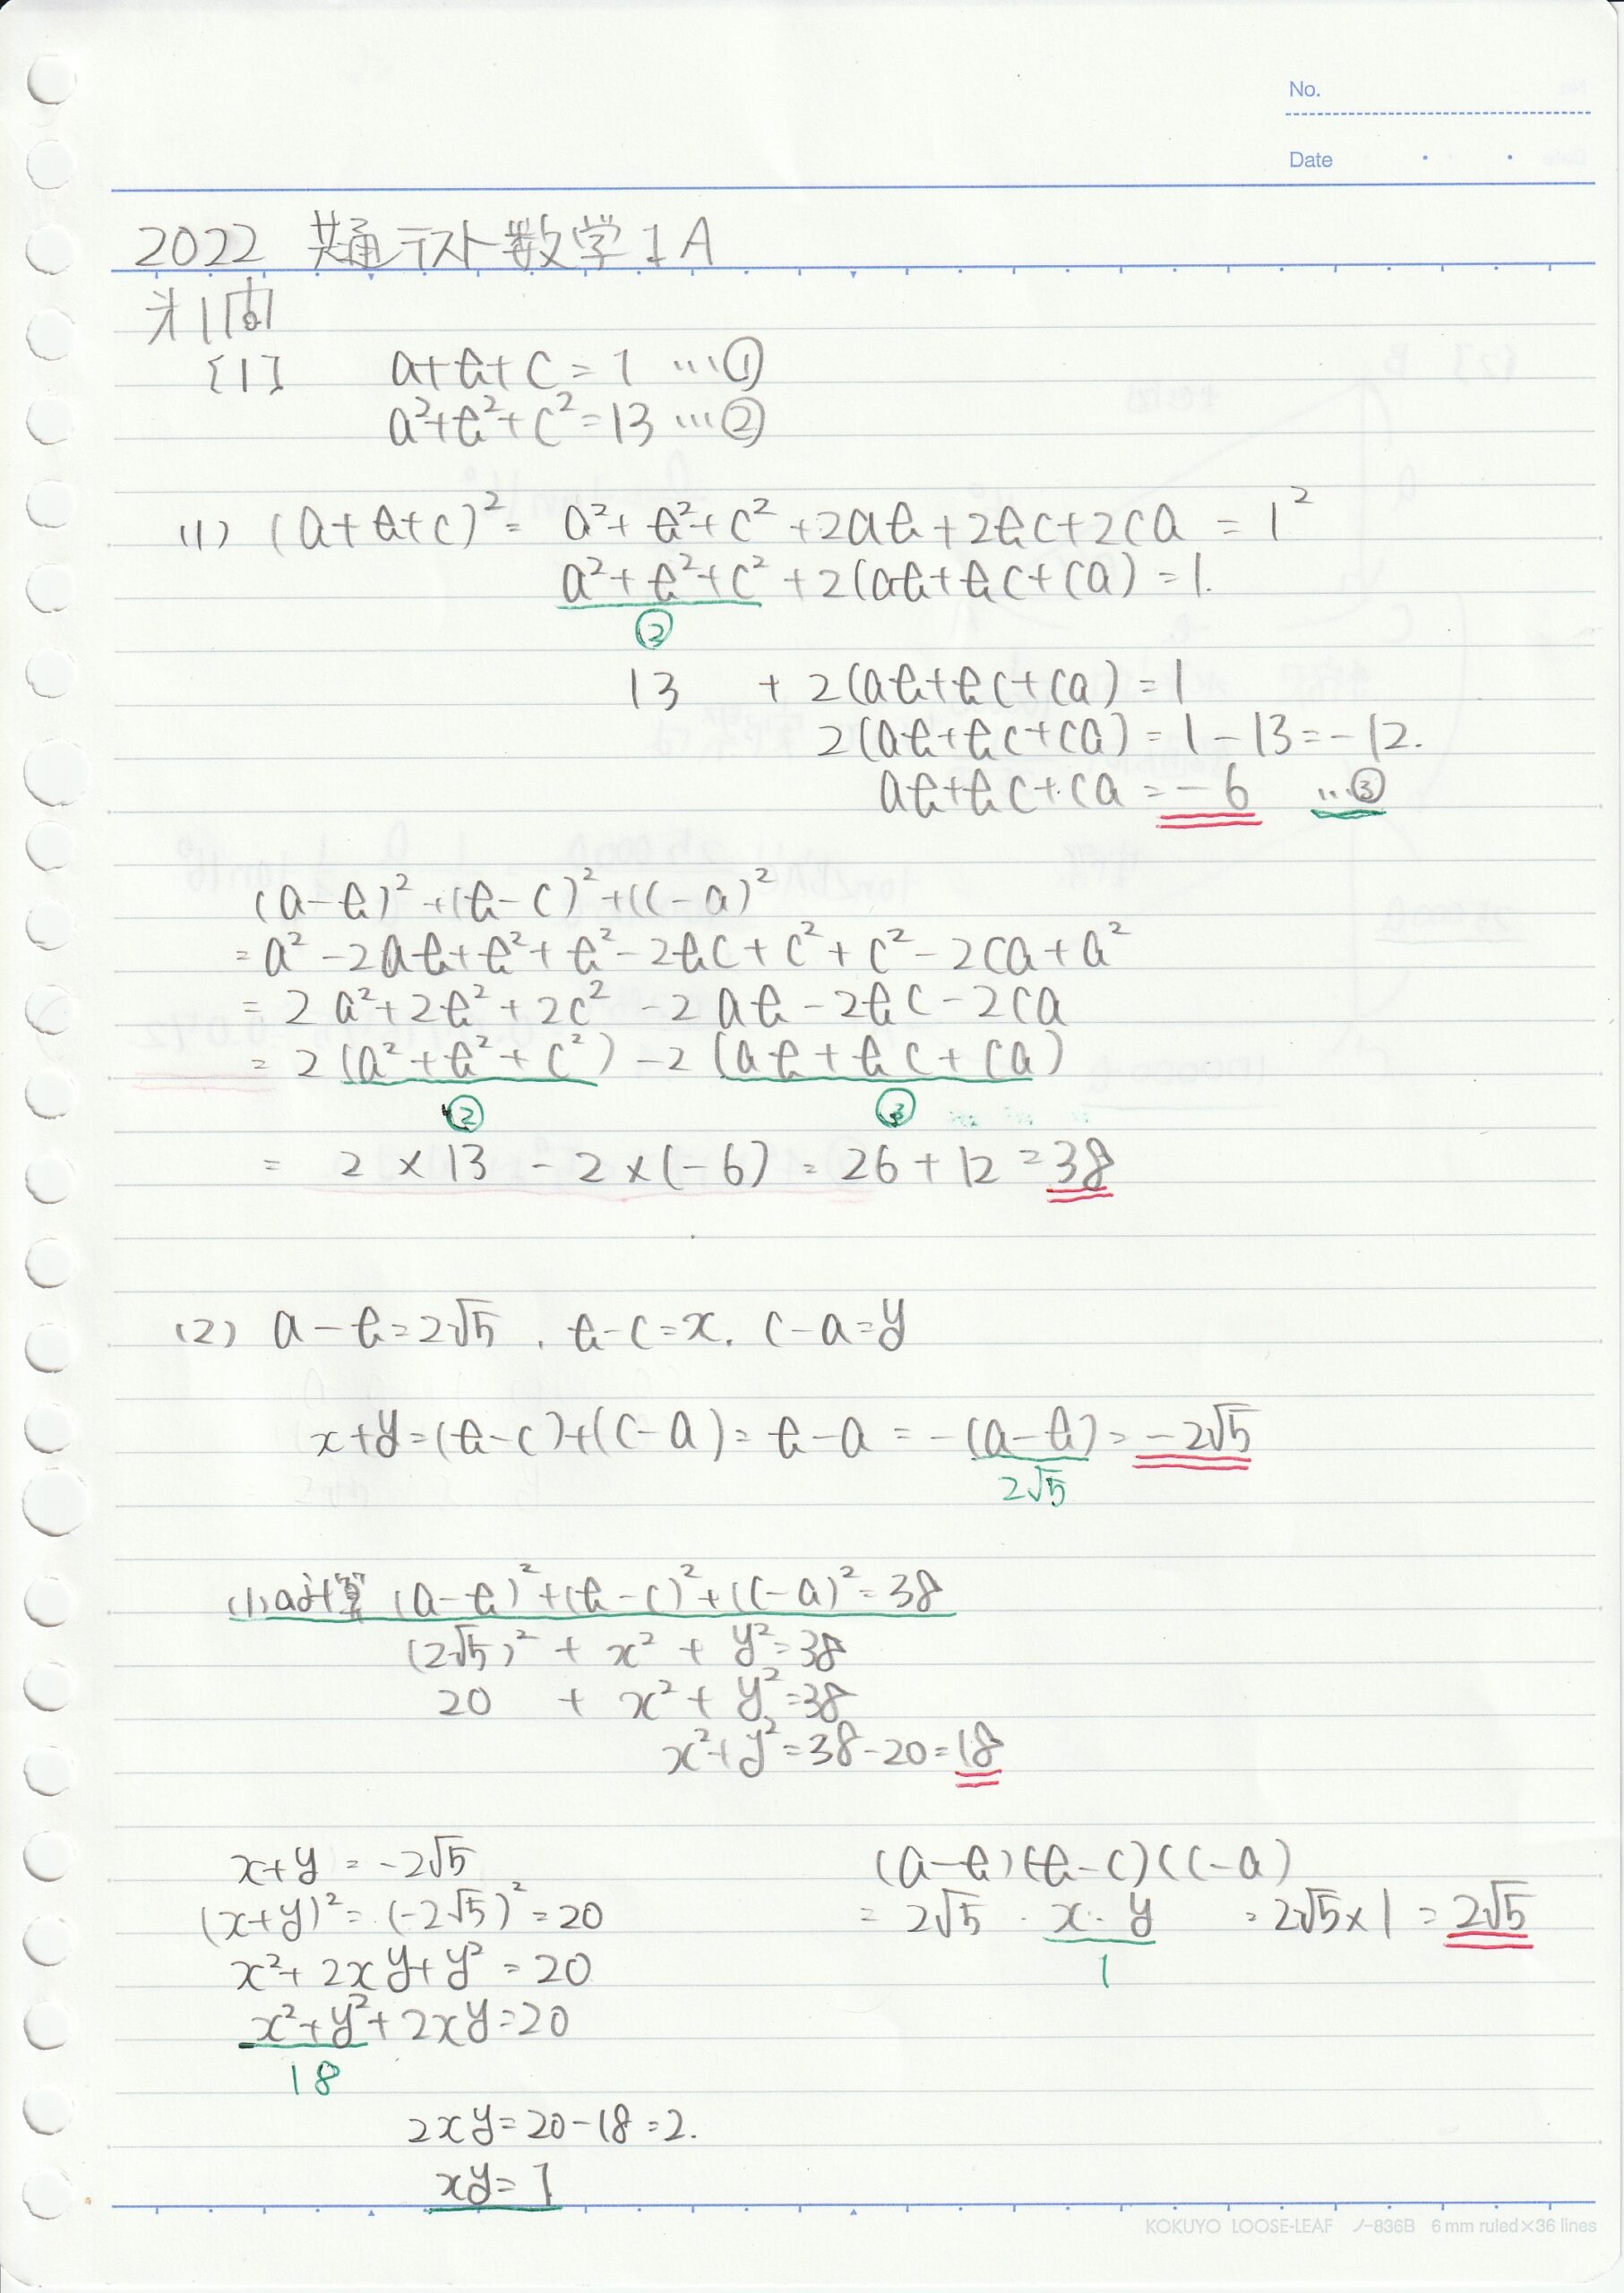 No.
Date
2022 共通テスト数学1A
第1問
[1] a+b+c=1 …①
a²+b²+c²=13 …②
(1) (a+b+c)²= a²+b²+c²+2ab+2bc+2ca = 1²
a²+b²+c²+2(ab+bc+ca)=1.
②
13 +2(ab+bc+ca)=1
2(ab+bc+ca)=1-13=-12.
ab+bc+ca=-6 …③
(a-b)²+(b-c)²+(c-a)²
=a²-2ab+b²+b²-2bc+c²+c²-2ca+a²
=2a²+2b²+2c²-2ab-2bc-2ca
=2(a²+b²+c²)-2(ab+bc+ca)
② ③
= 2×13 -2×(-6)=26+12=38
(2) a-b=2√5, b-c=x, c-a=y
x+y=(b-c)+(c-a)=b-a=-(a-b)=-2√5
2√5
(1)の計算 (a-b)²+(b-c)²+(c-a)²=38
(2√5)²+x²+y²=38
20 +x²+y²=38
x²+y²=38-20=18
x+y=-2√5
(x+y)²=(-2√5)²=20
x²+2xy+y²=20
x²+y²+2xy=20
18
2xy=20-18=2.
xy=1
(a-b)(b-c)(c-a)
=2√5・x・y =2√5×1=2√5
1
KOKUYO LOOSE-LEAF ノ-836B 6 mm ruled×36 lines